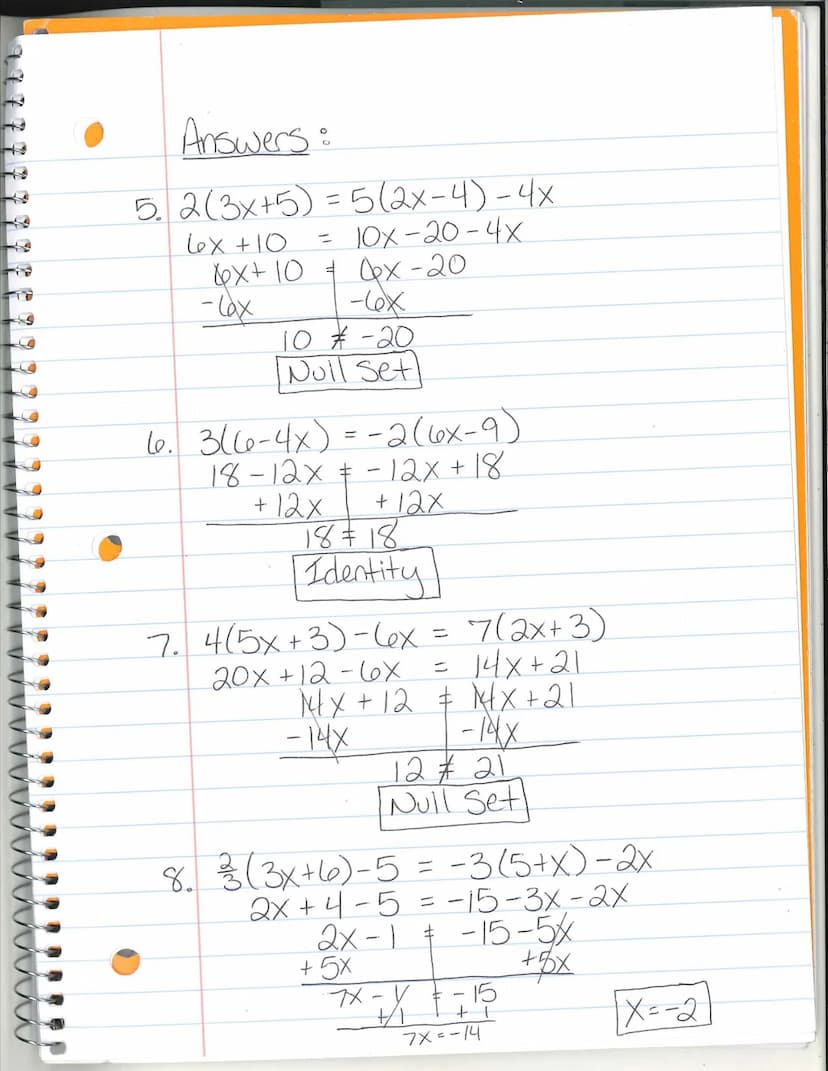 Answers:
5. 2(3x+5) = 5(2x-4)-4x
6x+10 = 10x-20-4x
6x+10 = 6x-20
-6x -6x
10 ≠ -20
Null Set
6. 3(6-4x) = -2(6x-9)
18-12x = -12x+18
+12x +12x
18 = 18
Identity
7. 4(5x+3)-6x = 7(2x+3)
20x+12-6x = 14x+21
14x+12 = 14x+21
-14x -14x
12 ≠ 21
Null Set
8. 2/3(3x+6)-5 = -3(5+x)-2x
2x+4-5 = -15-3x-2x
2x-1 = -15-5x
+5x +5x
7x-1 = -15
+1 +1
7x=-14
x=-2